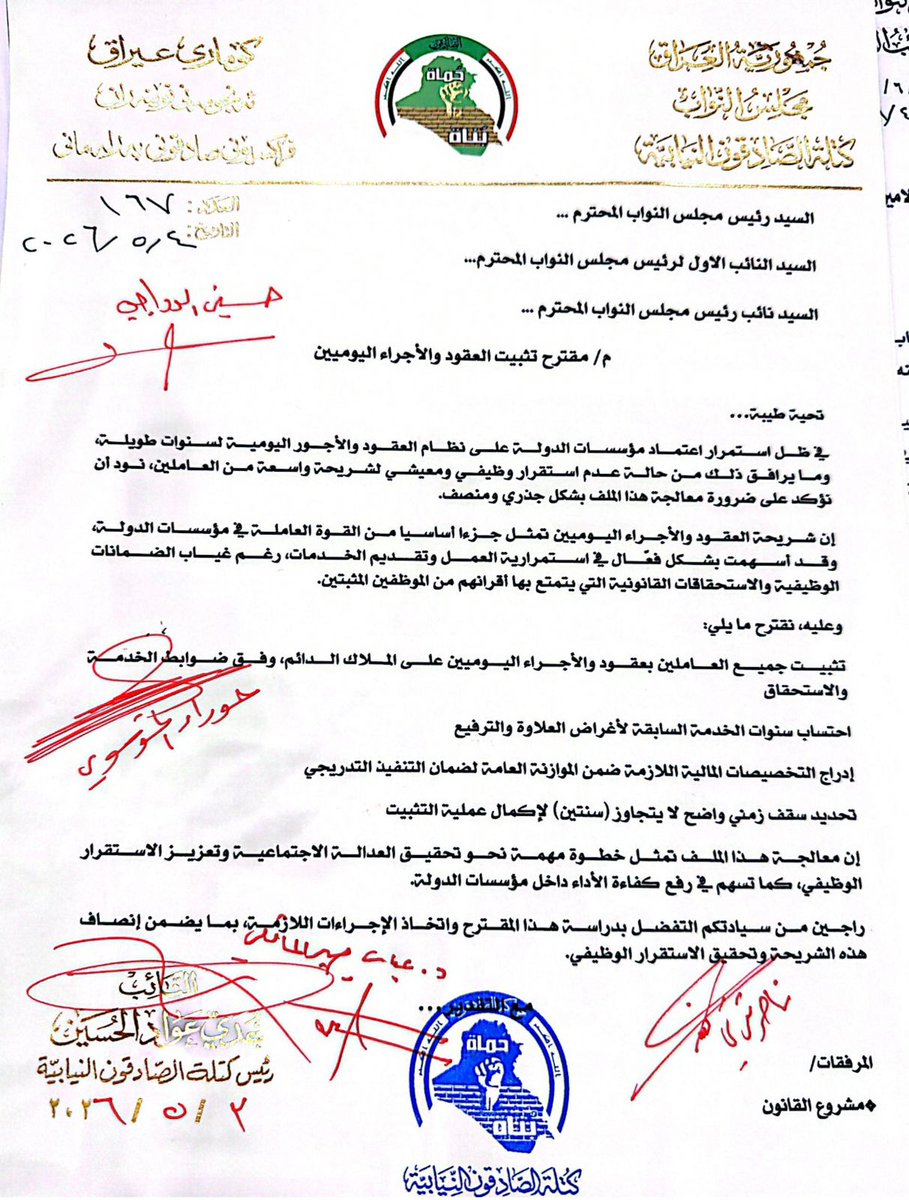 جمهورية العراق
مجلس النواب
كتلة الصادقون النيابية
كۆماری عیراق
حماة
بناة
العدد: ١٦٧
التاريخ: ٢٠٢٦/٥/٤
السيد رئيس مجلس النواب المحترم ...
السيد النائب الاول لرئيس مجلس النواب المحترم...
السيد نائب رئيس مجلس النواب المحترم ...
م/ مقترح تثبيت العقود والأجراء اليوميين
تحية طيبة...
في ظل استمرار اعتماد مؤسسات الدولة على نظام العقود والأجور اليومية لسنوات طويلة،
وما يرافق ذلك من حالة عدم استقرار وظيفي ومعيشي لشريحة واسعة من العاملين، نود أن
نؤكد على ضرورة معالجة هذا الملف بشكل جذري ومنصف.
إن شريحة العقود والأجراء اليوميين تمثل جزءا أساسيا من القوة العاملة في مؤسسات الدولة،
وقد أسهمت بشكل فعّال في استمرارية العمل وتقديم الخدمات، رغم غياب الضمانات
الوظيفية والاستحقاقات القانونية التي يتمتع بها أقرانهم من الموظفين المثبتين.
وعليه، نقترح ما يلي:
تثبيت جميع العاملين بعقود والأجراء اليوميين على الملاك الدائم، وفق ضوابط الخدمة
والاستحقاق
احتساب سنوات الخدمة السابقة لأغراض العلاوة والترفيع
إدراج التخصيصات المالية اللازمة ضمن الموازنة العامة لضمان التنفيذ التدريجي
تحديد سقف زمني واضح لا يتجاوز (سنتين) لإكمال عملية التثبيت
إن معالجة هذا الملف تمثل خطوة مهمة نحو تحقيق العدالة الاجتماعية وتعزيز الاستقرار
الوظيفي، كما تسهم في رفع كفاءة الأداء داخل مؤسسات الدولة.
راجين من سيادتكم التفضل بدراسة هذا المقترح واتخاذ الإجراءات اللازمة، بما يضمن إنصاف
هذه الشريحة وتحقيق الاستقرار الوظيفي.
مع التقدير...
النائب
عدي عواد الحسين
رئيس كتلة الصادقون النيابية
٢٠٢٦/٥/٣
المرفقات/
❖مشروع القانون
حماة
بناة
كتلة الصادقون النيابية